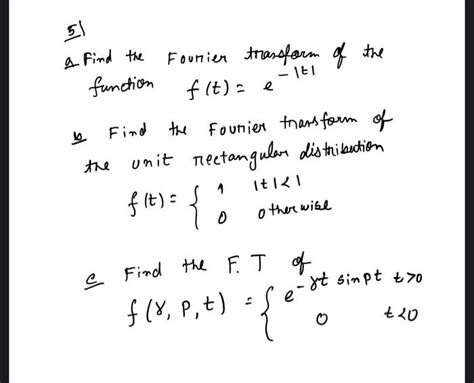 5)
a Find the Fourier transform of the
function f(t) = e^{-|t|}
b Find the Fourier transform of
the unit rectangular distribution
f(t) = { 1 |t|<1
0 otherwise
c Find the F.T of
f(γ, p, t) = { e^{-γt} sin pt t>0
0 t<0